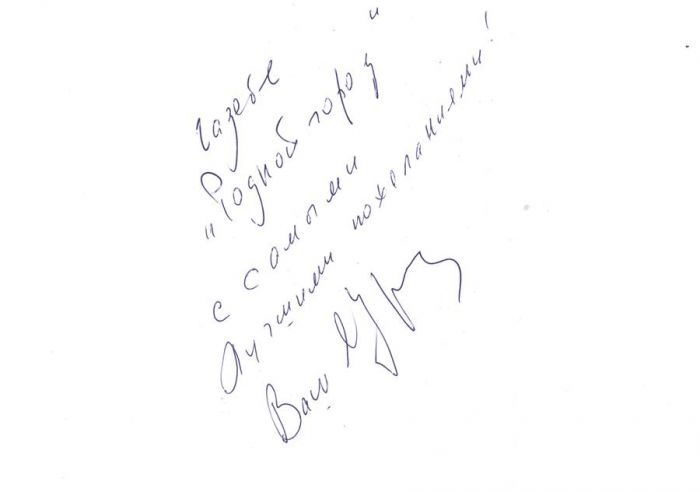 Газете
"Родной город"
с самыми
Лучшими пожеланиями!
Ваш